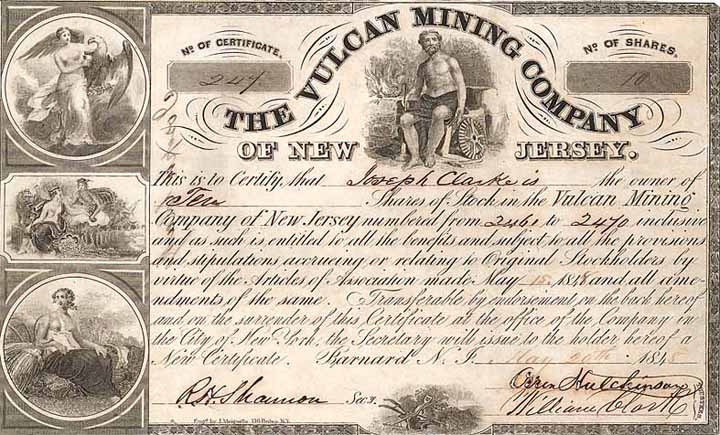 No OF CERTIFICATE.
247
No OF SHARES.
10
THE VULCAN MINING COMPANY
OF NEW JERSEY.
This is to Certify, that Joseph Clarke is the owner of
Ten Shares of Stock in the Vulcan Mining
Company of New Jersey numbered from 2461 to 2470 inclusive
and as such is entitled to all the benefits and subject to all the provisions
and stipulations accrueing or relating to Original Stockholders by
virtue of the Articles of Association made May 15, 1848 and all ame-
ndments of the same. Transferable by endorsement on the back hereof
and on the surrender of this Certificate at the office of the Company in
the City of New York, the Secretary will issue to the holder hereof a
New Certificate. Barnard N. J. May 20th 1848
R H Shannon Secy.
Orrin Hutchinson
William Clark